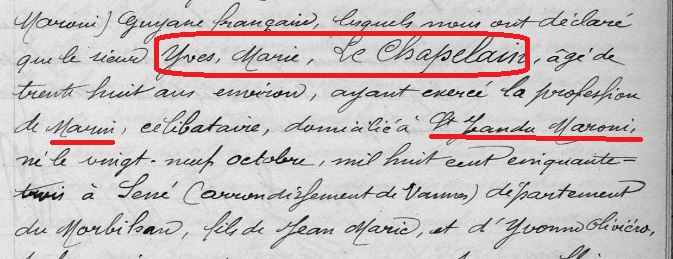 Maroni) Guyane française, lesquels nous ont déclaré
que le sieur Yves, Marie, Le Chapelain, âgé de
trente huit ans environ, ayant exercé la profession
de Marin, célibataire, domicilié à St Jean du Maroni,
né le vingt-neuf octobre, mil huit cent cinquante=
trois à Séné (arrondissement de Vannes) département
du Morbihan, fils de Jean Marie, et d'Yvonne Oliviéro,